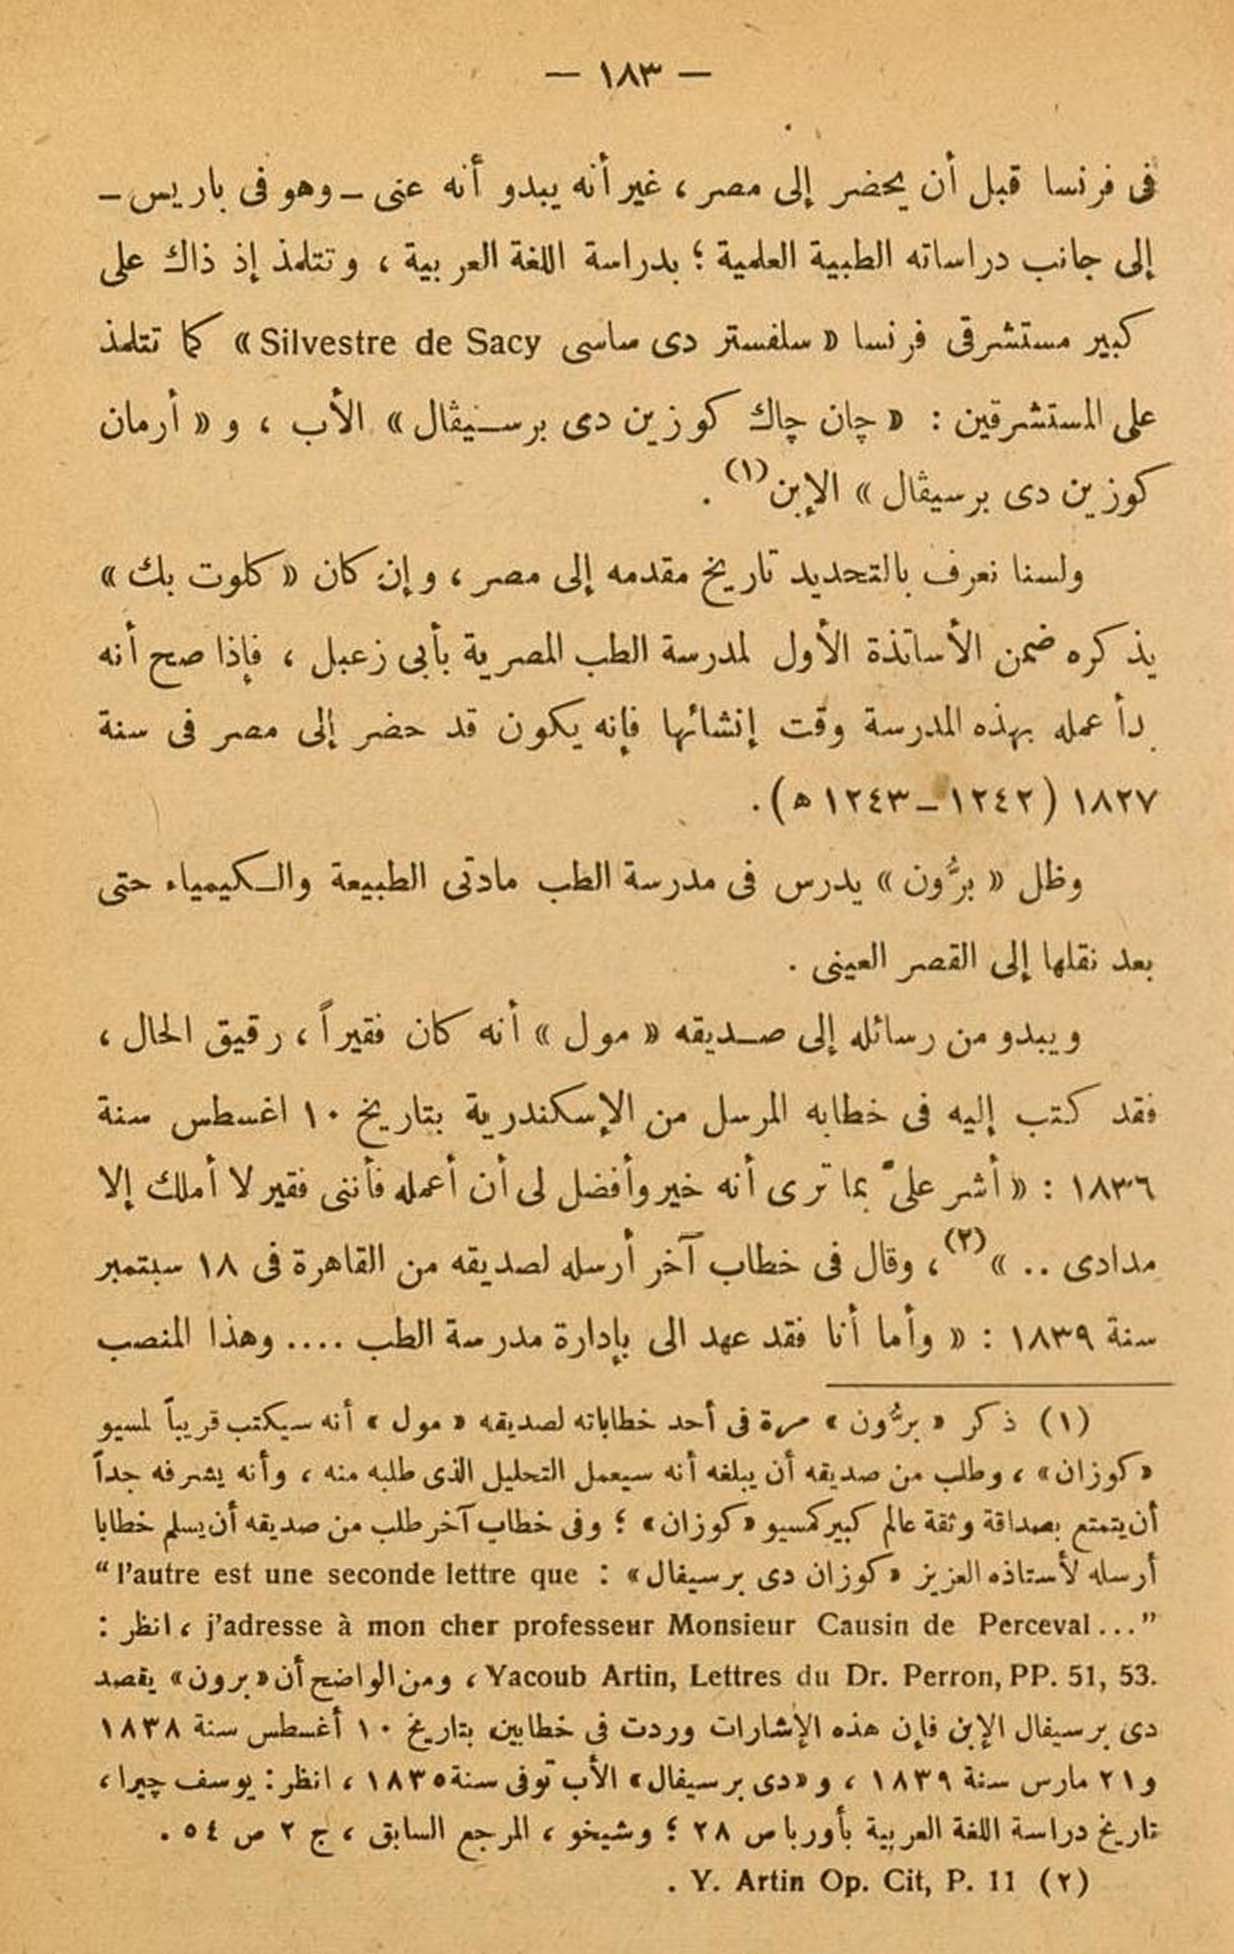 — ١٨٣ —
فى فرنسا قبل أن يحضر إلى مصر ، غير أنه يبدو أنه عنى – وهو فى باريس –
إلى جانب دراساته الطبية العلمية ؛ بدراسة اللغة العربية ، وتتلمذ إذ ذاك على
كبير مستشرقى فرنسا « سلفستر دى ساسى Silvestre de Sacy » كما تتلمذ
على المستشرقين : « چان چاك كوزين دى برسنيڤال » الأب ، و « أرمان
كوزين دى برسيڤال » الإبن (١) .
ولسنا نعرف بالتحديد تاريخ مقدمه إلى مصر ، وإن كان « كلوت بك »
يذكره ضمن الأساتذة الأول لمدرسة الطب المصرية بأبى زعبل ، فإذا صح أنه
بدأ عمله بهذه المدرسة وقت إنشائها فإنه يكون قد حضر إلى مصر فى سنة
١٨٢٧ ( ١٢٤٢ – ١٢٤٣ ه ) .
وظل « برُّون » يدرس فى مدرسة الطب مادتى الطبيعة والكيمياء حتى
بعد نقلها إلى القصر العينى .
ويبدو من رسائله إلى صديقه « مول » أنه كان فقيراً ، رقيق الحال ،
فقد كتب إليه فى خطابه المرسل من الإسكندرية بتاريخ ١٠ اغسطس سنة
١٨٣٦ : « أشر علىّ بما ترى أنه خير وأفضل لى أن أعمله فأننى فقير لا أملك إلا
مدادى .. » (٢) ، وقال فى خطاب آخر أرسله لصديقه من القاهرة فى ١٨ سبتمبر
سنة ١٨٣٩ : « وأما أنا فقد عهد الى بإدارة مدرسة الطب .... وهذا المنصب
(١) ذكر « برُّون » مرة فى أحد خطاباته لصديقه « مول » أنه سيكتب قريباً لمسيو
« كوزان » ، وطلب من صديقه أن يبلغه أنه سيعمل التحليل الذى طلبه منه ، وأنه يشرفه جداً
أن يتمتع بصداقة وثقة عالم كبير كمسيو « كوزان » ؛ وفى خطاب آخر طلب من صديقه أن يسلم خطابا
أرسله لأستاذه العزيز « كوزان دى برسيفال » : “ l’autre est une seconde lettre que
j’adresse à mon cher professeur Monsieur Causin de Perceval ... ” ، انظر :
Yacoub Artin, Lettres du Dr. Perron, PP. 51, 53. ، ومن الواضح أن « برون » يقصد
دى برسيفال الإبن فإن هذه الإشارات وردت فى خطابين بتاريخ ١٠ أغسطس سنة ١٨٣٨
و ٢١ مارس سنة ١٨٣٩ ، و « دى برسيفال » الأب توفى سنة ١٨٣٥ ، انظر : يوسف چيرا ،
تاريخ دراسة اللغة العربية بأوربا ص ٢٨ ؛ وشيخو ، المرجع السابق ، ج ٢ ص ٥٤ .
(٢) Y. Artin Op. Cit, P. 11 .